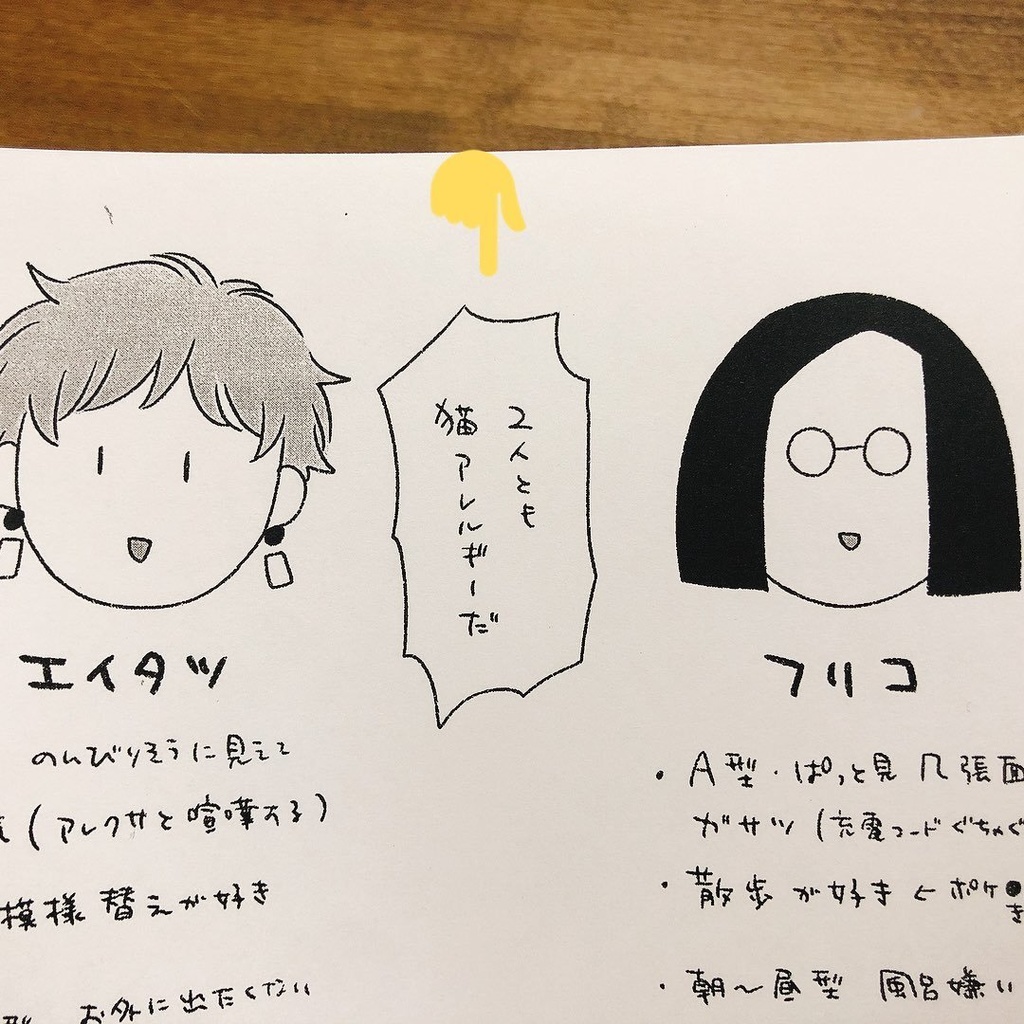 2人とも
猫アレルギーだ
エイタツ
のんびりそうに見えて
(アレクサと喧嘩する)
模様替えが好き
お外に出たくない
フリコ
・A型・ぱっと見几張面
ガサツ(充電コードぐちゃぐ
・散歩が好き←ポケ●
き
・朝〜昼型 風呂嫌い